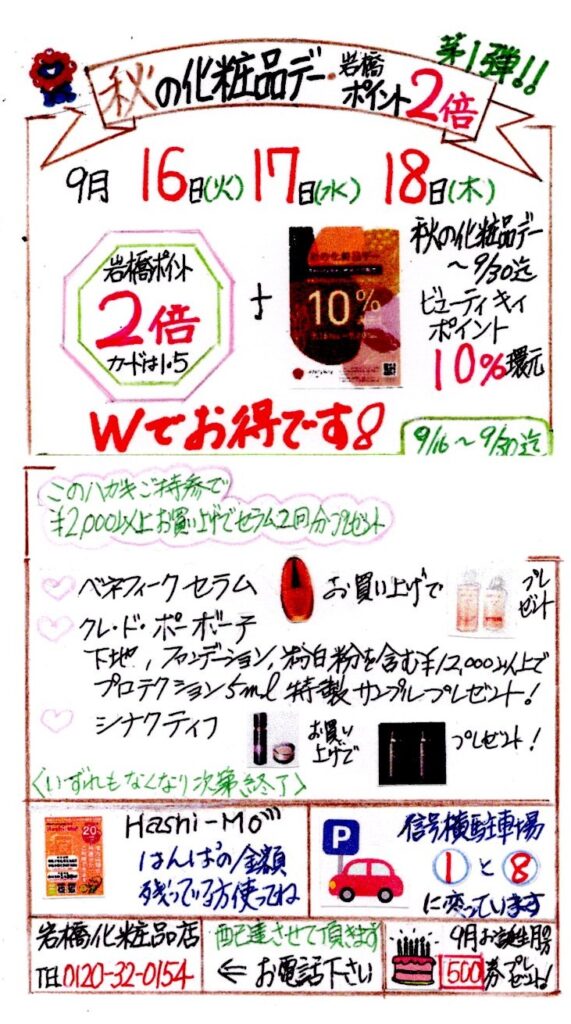 秋の化粧品デー・岩橋ポイント2倍
第1弾!!
9月 16日(火) 17日(水) 18日(木)
岩橋ポイント
2倍
カードは1.5
+
秋の化粧品デー
10%
秋の化粧品デー
～9/30迄
ビューティキィ
ポイント
10%還元
Wでお得です!
9/16～9/30迄
このハガキご持参で
¥2,000以上お買い上げでセラム2回分プレゼント
ベネフィークセラム お買い上げで プレゼント
クレ・ド・ポーボーテ
下地、ファンデーション、粉白粉を含む¥12,000以上で
プロテクション5ml特製サンプルプレゼント!
シナクティフ お買い上げで プレゼント!
〈いずれもなくなり次第終了〉
Hashi-Mo
はんぱの金額
残っている方使ってね
P
信号横駐車場
1と8
に変っています
岩橋化粧品店
TEL 0120-32-0154
配達させて頂きます
⇐ お電話下さい
9月お誕生月の方
500券プレゼント!